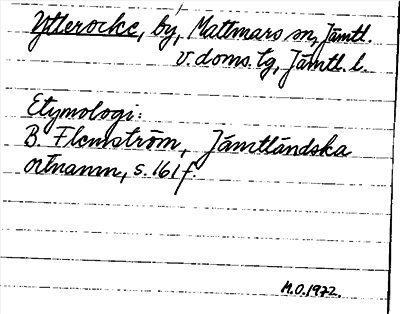 Ytterocke, by, Mattmars sn, Jämtl.
v. doms. tg, Jämtl. l.
Etymologi:
B. Flemström, Jämtländska
ortnamn, s. 161 f.
M.O. 1972.